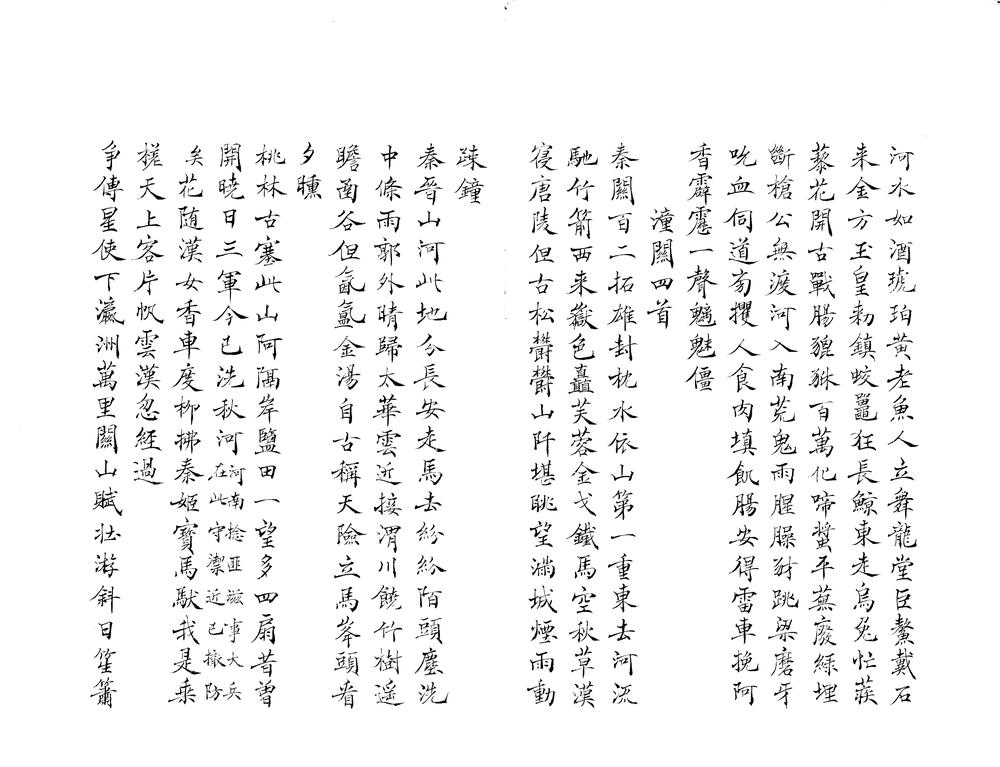 河水如酒琥珀黄老魚人立舞龍堂巨鰲戴石
来金方玉皇勑鎮蛟鼉狂長鯨東走烏兔忙蒺
藜花開古戰腸貔貅百萬化啼螀平蕪廢緑埋
斷槍公無渡河入南荒鬼雨腥臊豺跳梁磨牙
吮血伺道旁攫人食肉填飢腸安得雷車挽阿
香霹靂一聲魑魅僵
潼關四首
秦關百二拓雄封枕水依山第一重東去河流
馳竹箭西来嶽色矗芙蓉金戈鐵馬空秋草漢
寝唐陵但古松欝欝山阡堪眺望滿城煙雨動
疎鐘
秦晉山河此地分長安走馬去紛紛陌頭塵洗
中條雨郭外晴歸太華雲近接渭川饒竹樹遥
瞻函谷但氤氳金湯自古稱天險立馬峯頭看
夕曛
桃林古塞此山阿隔岸鹽田一望多四扇昔曽
開曉日三軍今已洗秋河河南捻匪滋事大兵在此守禦近已撤防
矣花随漢女香車度栁拂秦姬寶馬馱我是乘
槎天上客片帆雲漢忽經過
争傳星使下瀛洲萬里關山賦壮游斜日笙簫